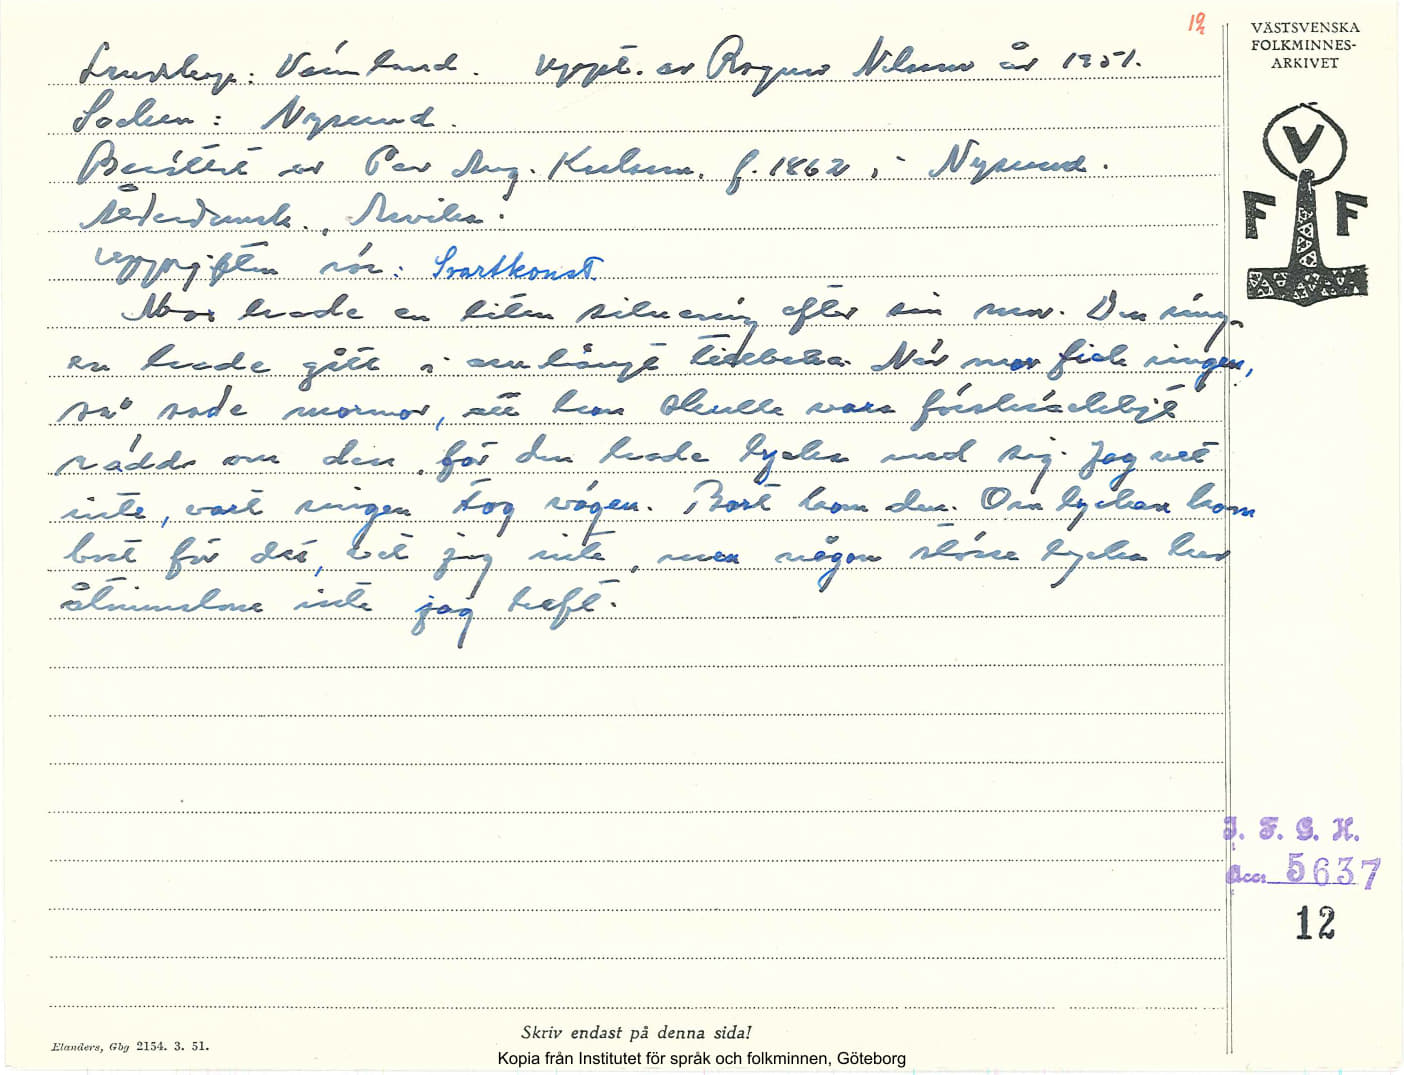 12
VÄSTSVENSKA
FOLKMINNES-
ARKIVET
Landskap: Värmland. Uppt. av Ragnar Nilsson år 1951.
Socken: Nysund.
Berättat av Per Aug. Karlsson, f. 1862 i Nysund.
Ålderdomsh., Arvika.
Uppgiften rör: Svartkonst.
Mor hade en liten silverring efter sin mor. Den ring-
en hade gått i långt tillbaka. När mor fick ringen,
så sade mormor, att hon skulle vara förskräckligt
rädd om den, för den hade lycka med sig. Jag vet
inte, vart ringen tog vägen. Bort kom den. Om lyckan kom
bort för det, vet jag inte, men någon större lycka har
åtminstone inte jag haft.
V
F F
J. F. G. H.
Acc. 5637
12
Skriv endast på denna sida!
Elanders, Gbg 2154. 3. 51.
Kopia från Institutet för språk och folkminnen, Göteborg